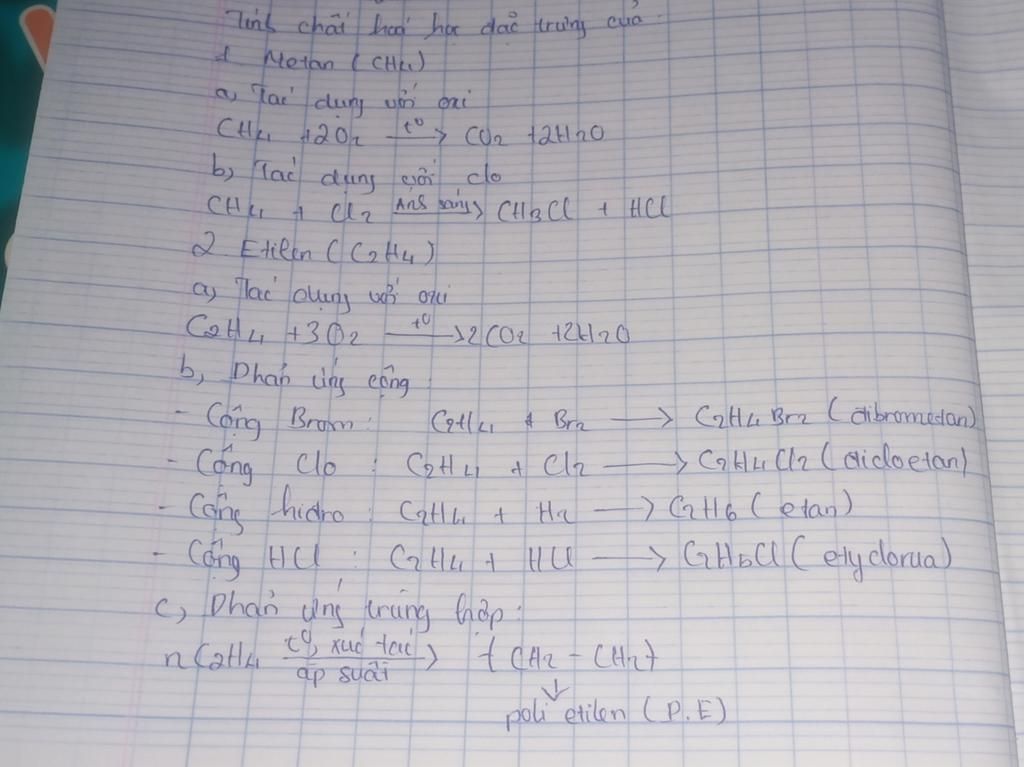 Tính chất hoá học đặc trưng của
1 Metan (CH4)
a, Tác dụng với oxi
CH4 +2O2 t° → CO2 +2H2O
b, Tác dụng với clo
CH4 + Cl2 Ánh sáng → CH3Cl + HCl
2. Etilen (C2H4)
a, Tác dụng với oxi
C2H4 +3O2 t° → 2CO2 +2H2O
b, Phản ứng cộng
- Cộng Brom: C2H4 + Br2 → C2H4Br2 (dibrometan)
- Cộng Clo : C2H4 + Cl2 → C2H4Cl2 (dicloetan)
- Cộng hidro : C2H4 + H2 → C2H6 (etan)
- Cộng HCl : C2H4 + HCl → C2H5Cl (etyclorua)
c, Phản ứng trùng hợp:
nC2H4 t°, xúc tác áp suất → (CH2 - CH2)
↓
poli etilen (P.E)